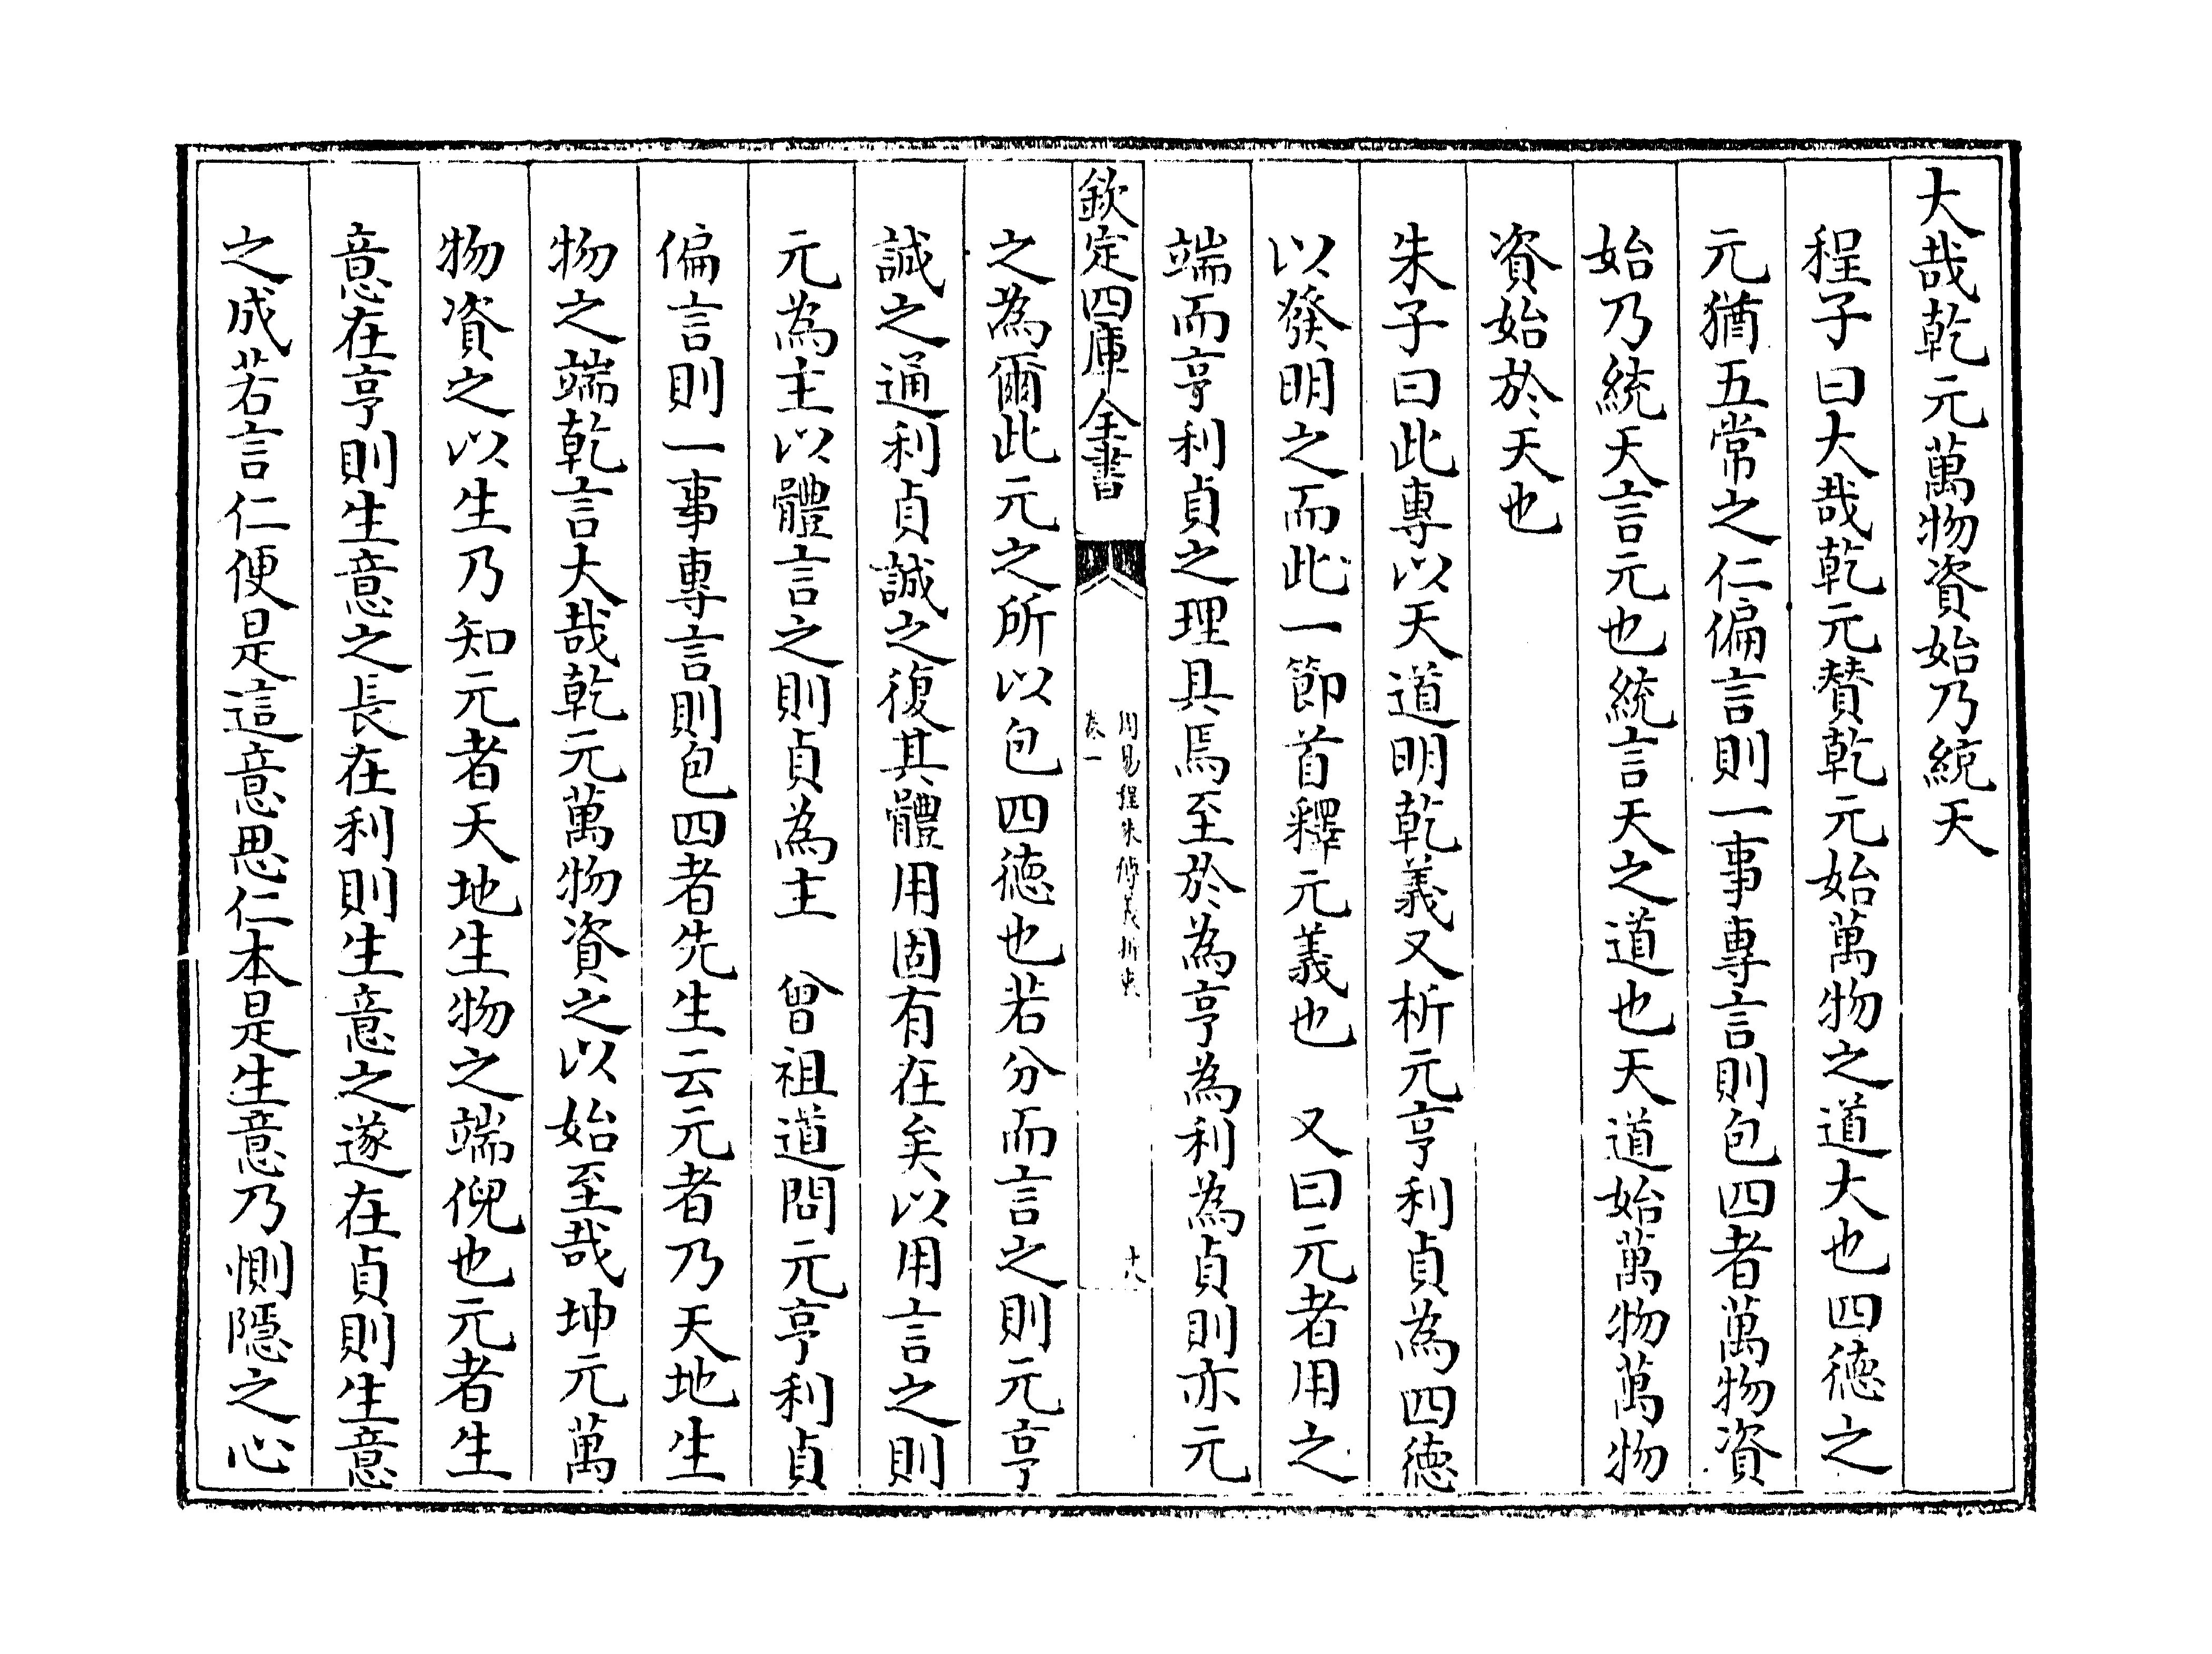 大哉乾元萬物資始乃統天
程子曰大哉乾元賛乾元始萬物之道大也四徳之
元猶五常之仁偏言則一事專言則包四者萬物資
始乃統天言元也統言天之道也天道始萬物萬物
資始於天也
朱子曰此專以天道明乾義又析元亨利貞為四徳
以發明之而此一節首釋元義也　又曰元者用之
端而亨利貞之理具焉至於為亨為利為貞則亦元
欽定四庫全書
周易程朱傳義折衷
卷一
十八
之為爾此元之所以包四徳也若分而言之則元亨
誠之通利貞誠之復其體用固有在矣以用言之則
元為主以體言之則貞為主　曾祖道問元亨利貞
偏言則一事專言則包四者先生云元者乃天地生
物之端乾言大哉乾元萬物資之以始至哉坤元萬
物資之以生乃知元者天地生物之端倪也元者生
意在亨則生意之長在利則生意之遂在貞則生意
之成若言仁便是這意思仁本是生意乃惻隱之心